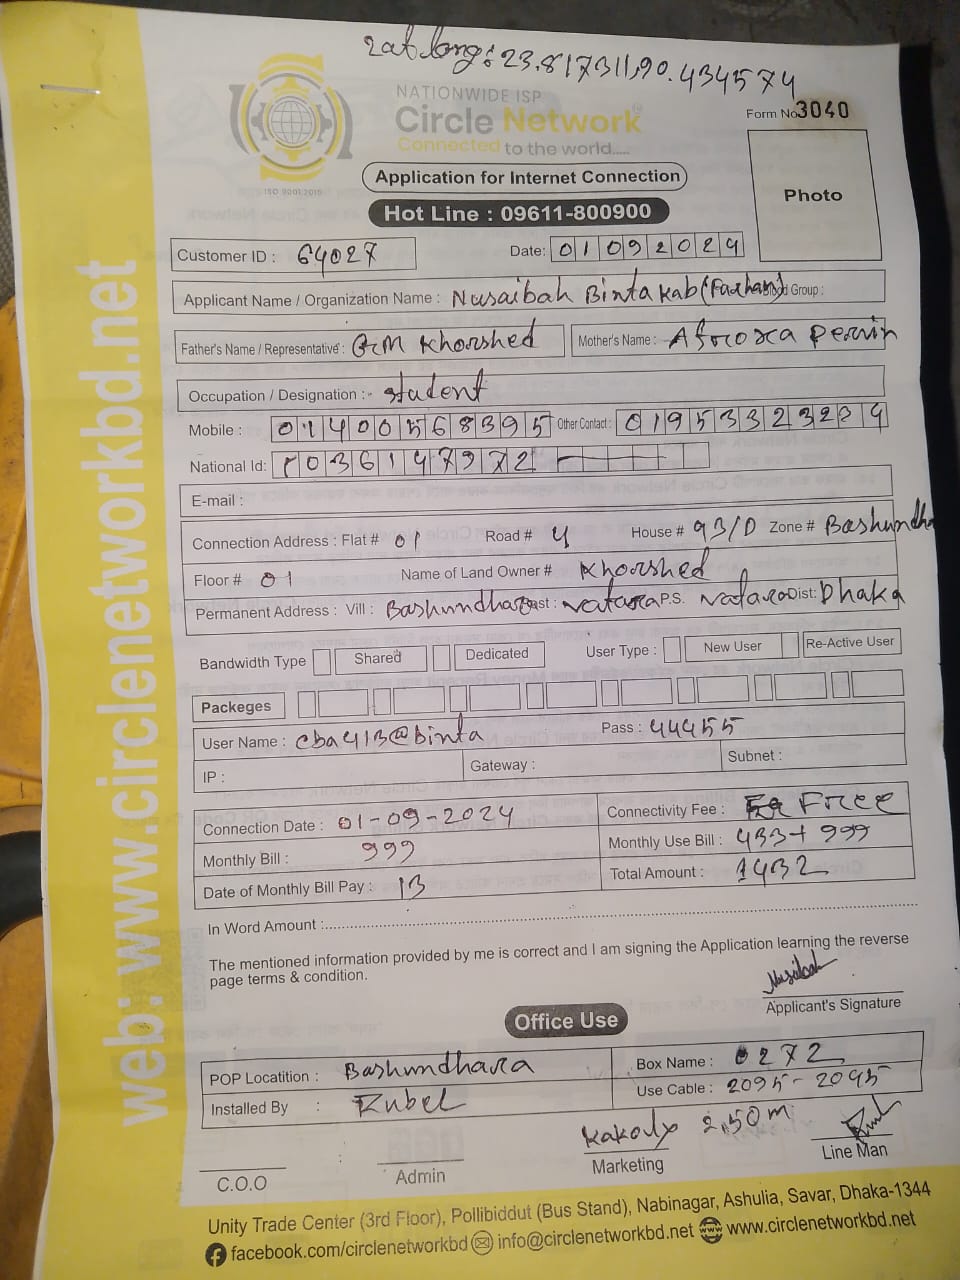 Lat long: 23.817311,90.434574
NATIONWIDE ISP
Circle Network
Connected to the world.....
ISO 9001:2015
Form No 3040
Application for Internet Connection
Photo
Hot Line : 09611-800900
Customer ID : 64027 Date: 01092024
Applicant Name / Organization Name : Nusaibah Binta kab (Farhan) Blood Group :
Father's Name / Representative : GM Khorshed Mother's Name : Afroza Pervin
Occupation / Designation :- Student
Mobile : 01400568395 Other Contact : 0195332323 4
National Id: 
E-mail :
Connection Address : Flat # 01 Road # 4 House # 93/D Zone # Bashundha
Floor # 01 Name of Land Owner # Khorshed
Permanent Address : Vill : Bashundhara Post : Vatara P.S. Vatara Dist: Dhaka
Bandwidth Type Shared Dedicated User Type : New User Re-Active User
Packeges
User Name : cba413@binta Pass : 44455
IP : Gateway : Subnet :
Connection Date : 01-09-2024 Connectivity Fee : Free
Monthly Bill : 999 Monthly Use Bill : 433+999
Date of Monthly Bill Pay : 13 Total Amount : 1432
In Word Amount :
The mentioned information provided by me is correct and I am signing the Application learning the reverse
page terms & condition.
Nusaibah
Applicant's Signature
Office Use
POP Locatition : Bashundhara Box Name : 0272
Installed By : Rubel Use Cable : 2095-2045
2,50m
C.O.O Admin Marketing Line Man
Unity Trade Center (3rd Floor), Pollibiddut (Bus Stand), Nabinagar, Ashulia, Savar, Dhaka-1344
facebook.com/circlenetworkbd info@circlenetworkbd.net www.circlenetworkbd.net
web: www.circlenetworkbd.net